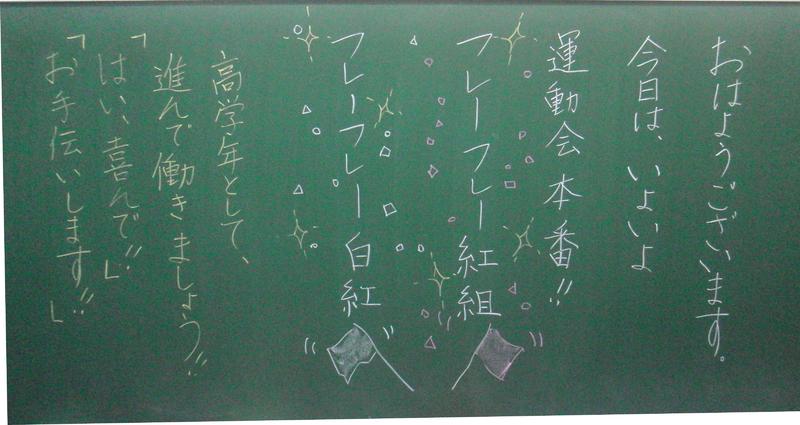 おはようございます。
今日は、いよいよ
運動会本番!!
フレーフレー紅組
フレーフレー白紅
高学年として、
進んで働きましょう!!
「はい、喜んで!!」
「お手伝いします!!」